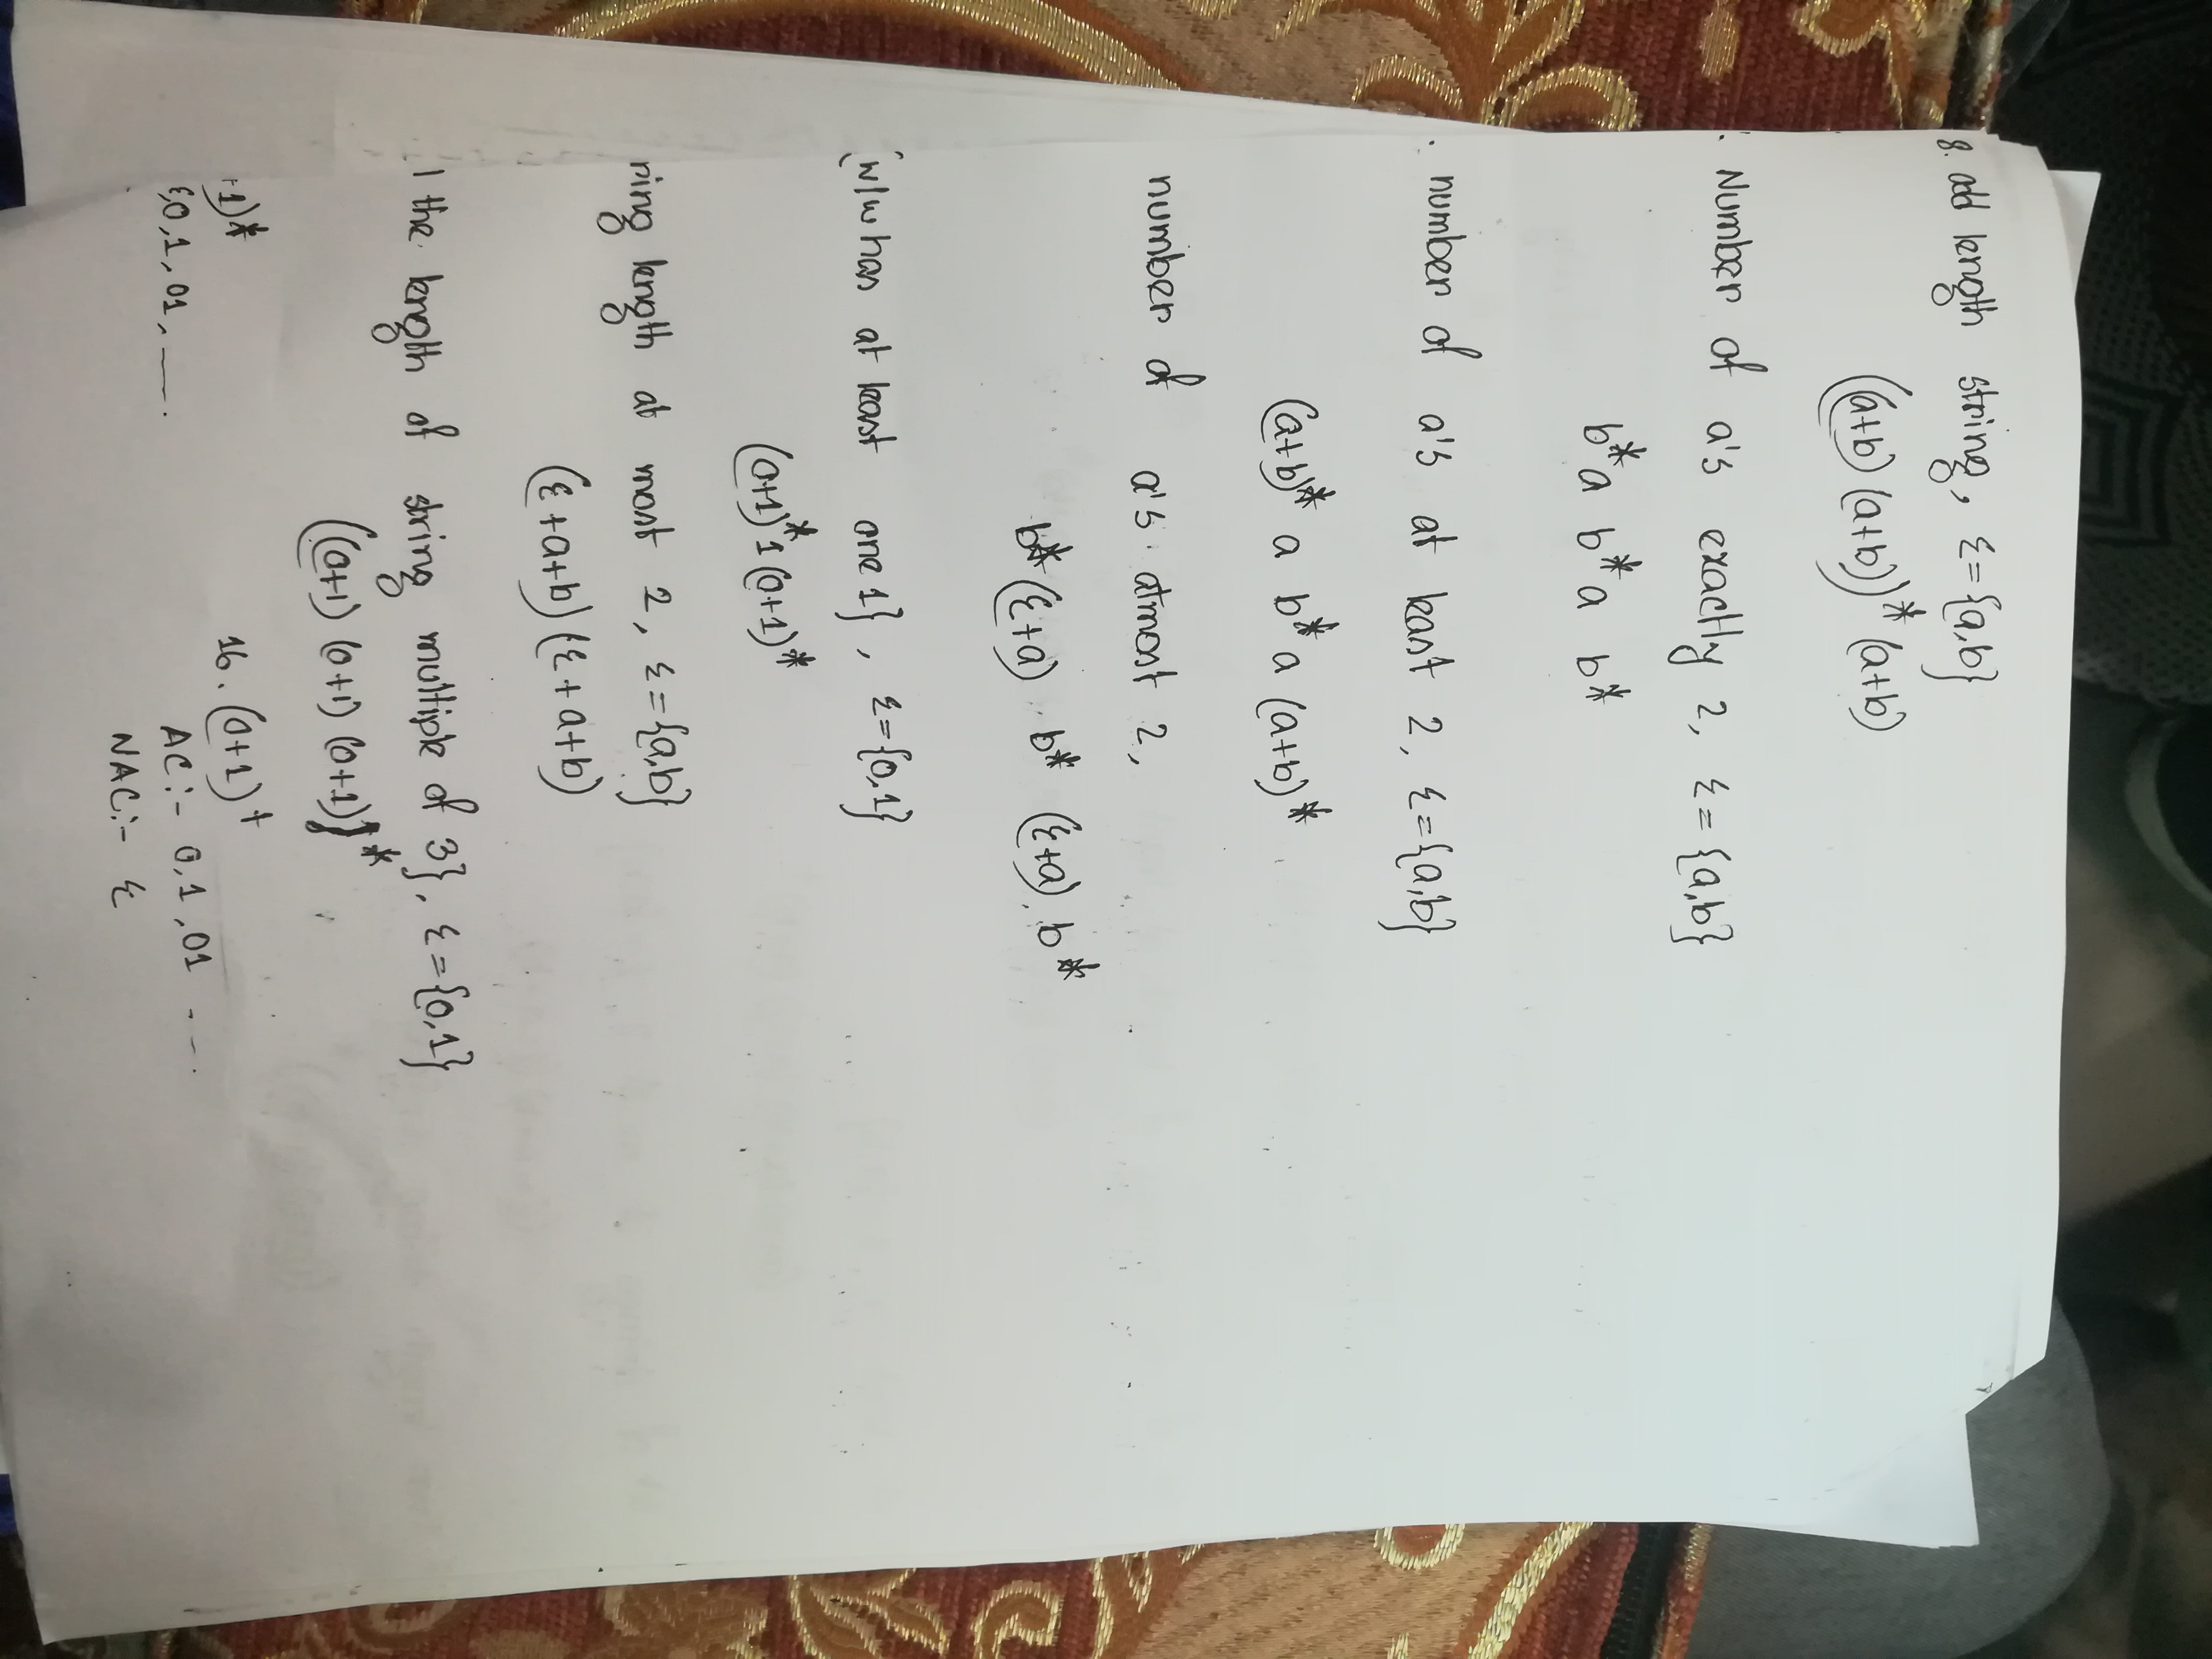 8. add length string, Ɛ={a,b}
((a+b) (a+b))* (a+b)
. Number of a's exactly 2, Ɛ = {a,b}
b*a b*a b*
. number of a's at least 2, Ɛ={a,b}
(a+b)* a b* a (a+b)*
number of a's atmost 2,
b*(Ɛ+a) b* (Ɛ+a) b*
{w/w has at least one 1}, Ɛ={0,1}
(0+1)*1(0+1)*
ring length at most 2, Ɛ={a,b}
(Ɛ+a+b)(Ɛ+a+b)
| the length of string multiple of 3}, Ɛ={0,1}
((0+1) (0+1) (0+1))*
+1)* 16. (0+1)+
Ɛ,0,1,01, __. AC:- 0,1,01 ----
NAC:- Ɛ